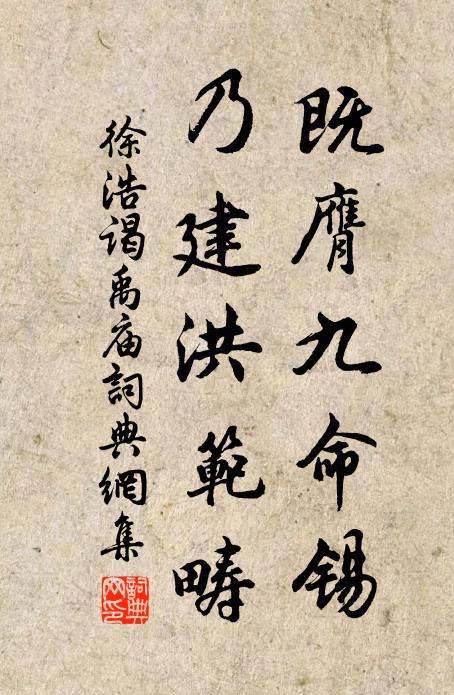 既膺九命锡
乃建洪範畴
徐浩谒禹庙詞典網集
詞典
网印